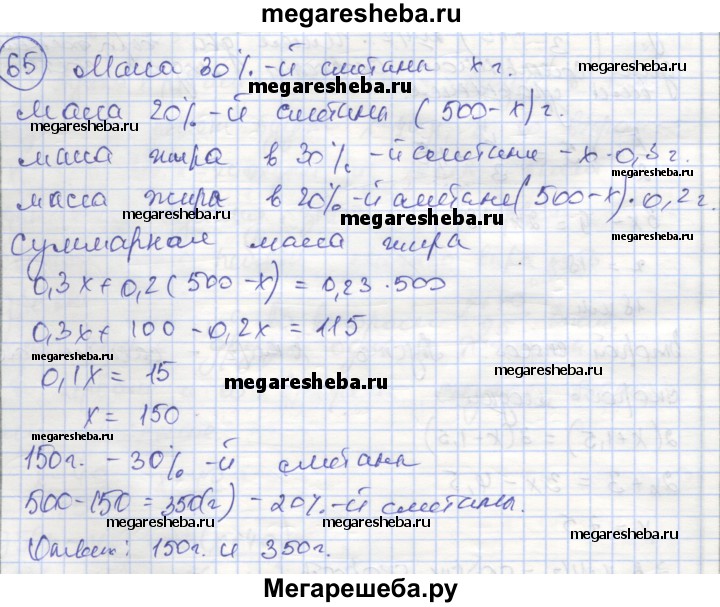 megaresheba.ru
65 Масса 30%-й сметаны х г.
Масса 20%-й сметаны (500-х) г.
megaresheba.ru
масса жира в 30%-й сметане - х·0,3 г.
масса жира в 20%-й сметане (500-х)·0,2 г.
megaresheba.ru megaresheba.ru
Суммарная масса жира
0,3х+0,2(500-х) = 0,23·500
0,3х+100-0,2х = 115
megaresheba.ru megaresheba.ru
0,1х = 15
megaresheba.ru
х = 150
megaresheba.ru
150г. - 30%-й сметаны
500-150=350(г) - 20%-й сметаны.
megaresheba.ru megaresheba.ru megaresheba.ru
Ответ: 150г. и 350г.
Мегарешеба.ру